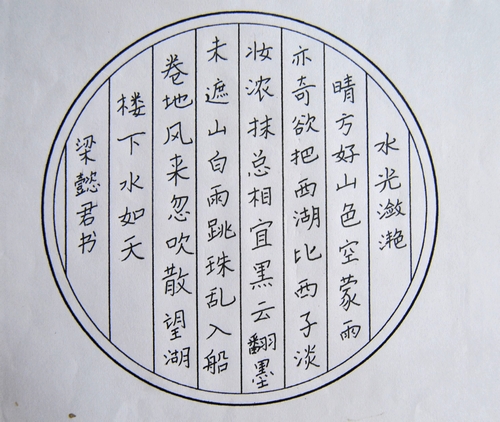 水光潋滟
晴方好山色空蒙雨
亦奇欲把西湖比西子淡
妆浓抹总相宜黑云翻墨
未遮山白雨跳珠乱入船
卷地风来忽吹散望湖
楼下水如天
梁懿君书